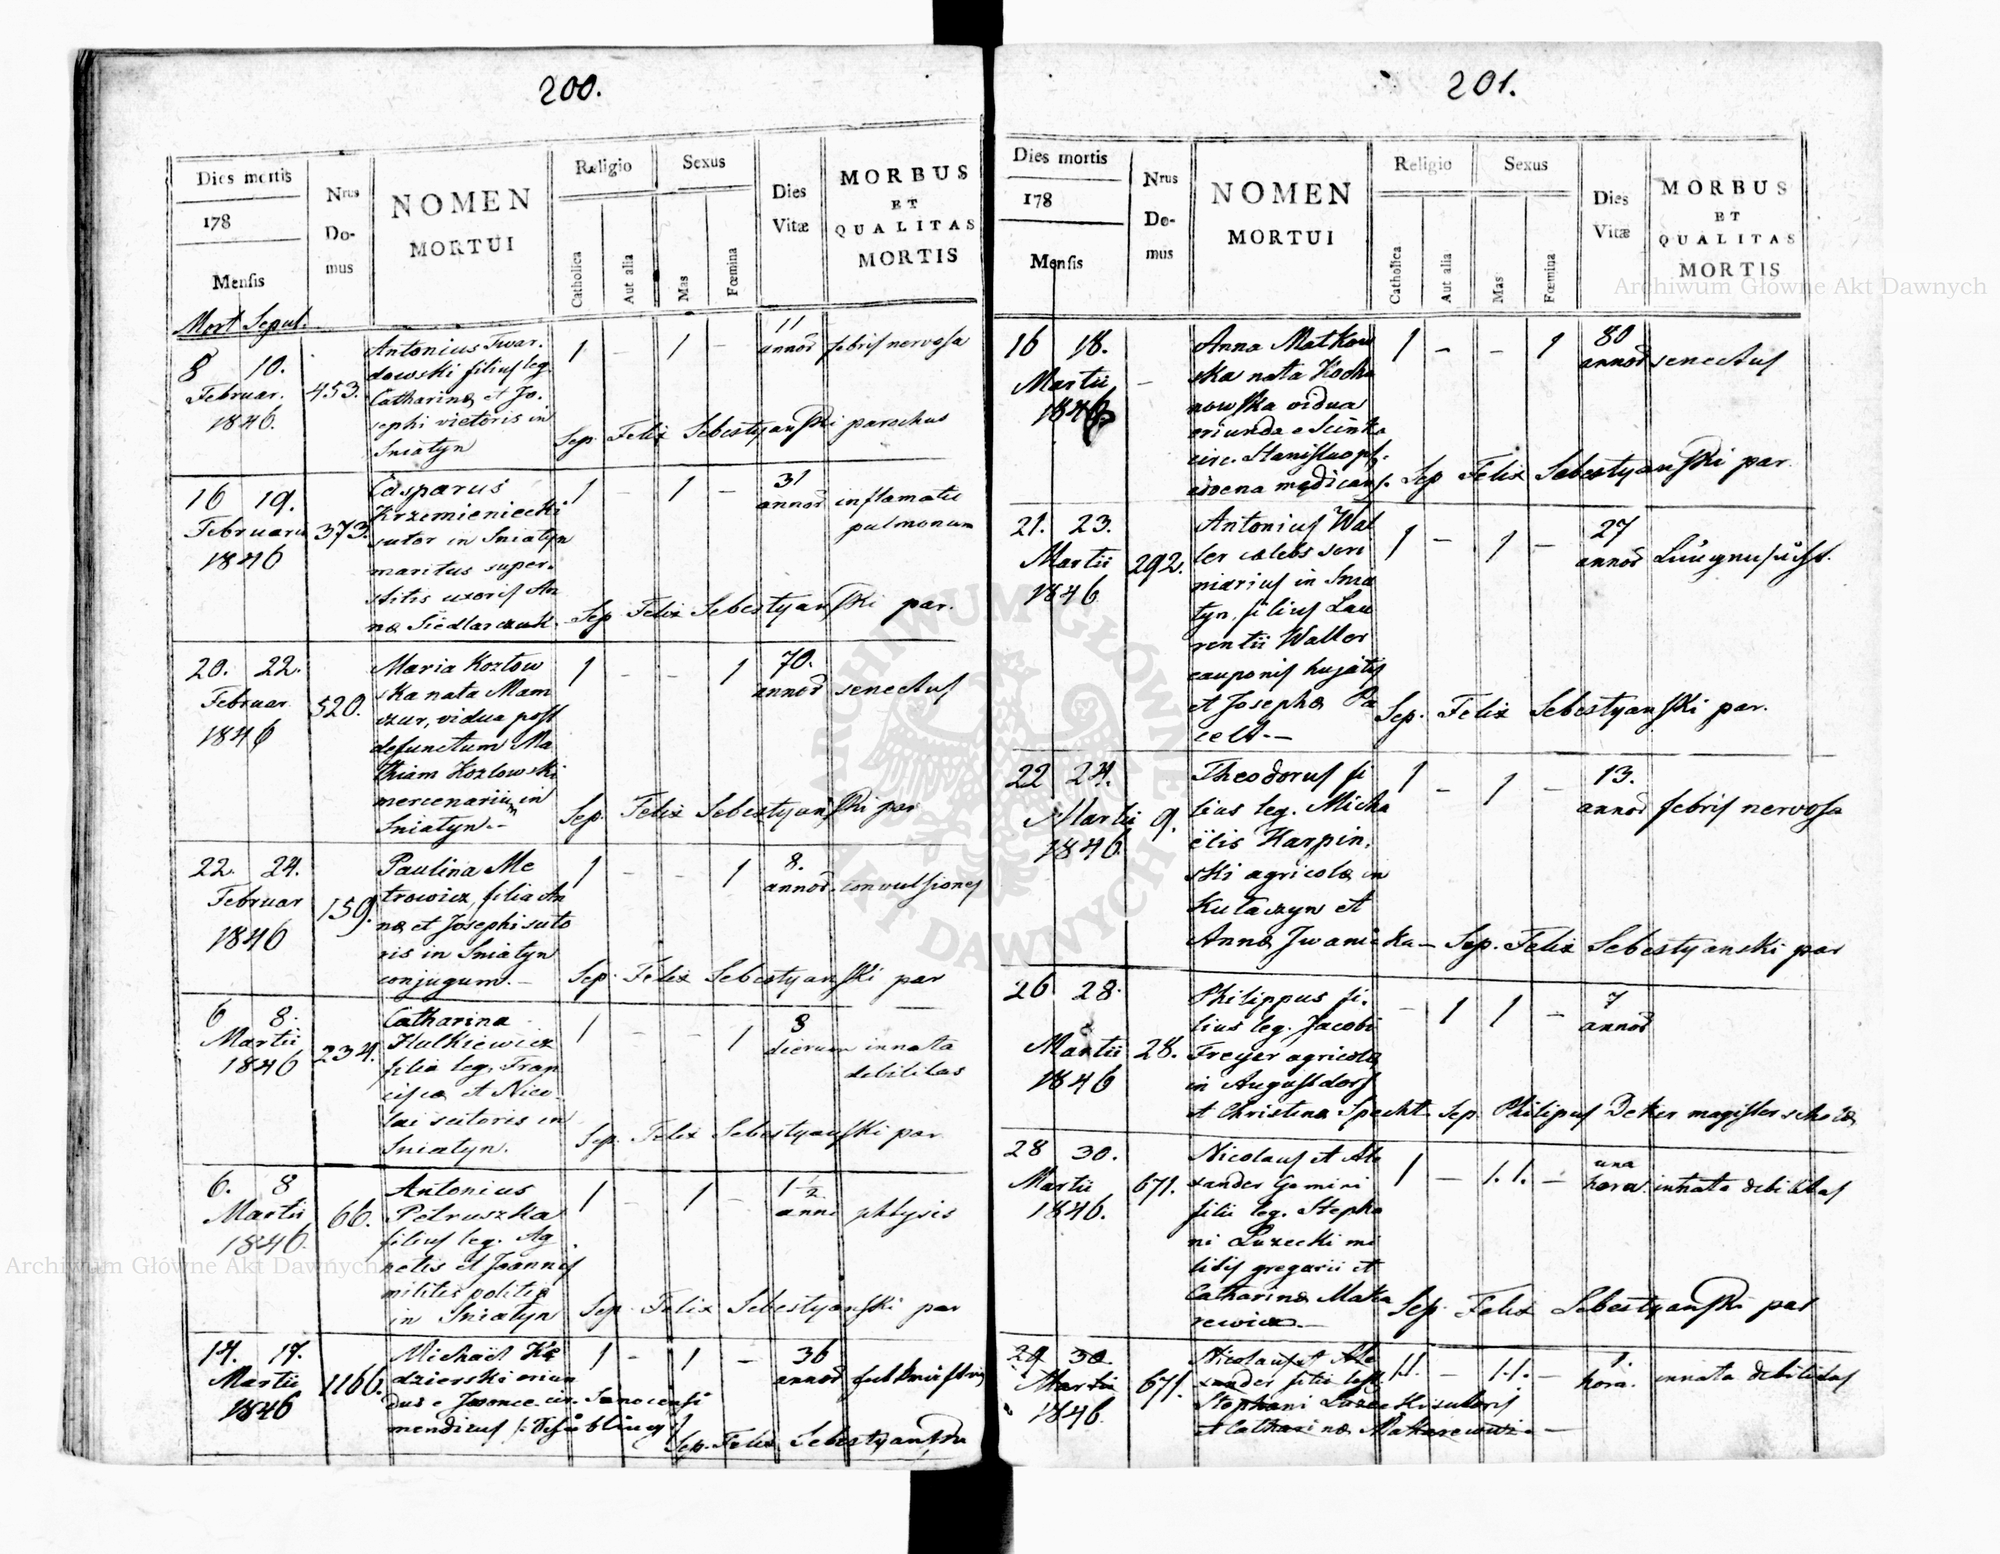 200.
Dies mortis
178
Mensis
Nrus Do-mus
NOMEN
MORTUI
Religio
Catholica
Aut alia
Sexus
Mas
Fœmina
Dies
Vitæ
MORBUS
ET
QUALITAS
MORTIS
Mort Sepul.
8 10.
Februar.
1846.
453.
Antonius Twar-
dowski filius leg.
Catharinæ et Jo-
sephi victoris in
Sniatyn
1 - 1 -
11
annor
febris nervosa
Sep. Felix Sebestyański parochus
16 19.
Februarii
1846
373.
Casparus
Krzemieniecki
sutor in Sniatyn
maritus super-
stitis uxoris An
næ Siedlarczuk.
1 - 1 -
31
annor
inflamatio
pulmonum
Sep. Felix Sebestyański par.
20. 22.
Februar.
1846
520.
Maria Kozłow
ska nata Mam
czur, vidua post
defunctum Ma
thiam Kozlowski
mercenarium in
Sniatyn.-
1 - - 1
70.
annor
senectus
Sep. Felix Sebestyański par
22. 24.
Februar
1846
159.
Paulina Me
trowicz, filia An
næ et Josephi suto
ris in Sniatyn
conjugum.-
1 - - 1
8.
annor.
convulsiones
Sep. Felix Sebestyański par
6 8.
Martii
1846
234.
Catharina
Hulkiewicz
filia leg. Fran
ciscæ et Nico-
lai sutoris in
Sniatyn.
1 - - 1
8
dierum
innata
debilitas
Sep. Felix Sebestyański par.
6. 8
Martii
1846.
66.
Antonius
Petruszka
filius leg. Ag
netis et Joannis
militis politiæ
in Sniatyn
1 - 1 -
1 1/2
anni
phtysis
Sep. Felix Sebestyański par
14. 17.
Martii
1846
1166.
Michaël Kę
dzierski oriun
dus e cir. Sanocensi
mendicus
1 - 1 -
36
annor
Sep. Felix Sebestyański
201.
Dies mortis
178
Mensis
Nrus Do-mus
NOMEN
MORTUI
Religio
Catholica
Aut alia
Sexus
Mas
Fœmina
Dies
Vitæ
MORBUS
ET
QUALITAS
MORTIS
16 18.
Martii
1846.
-
Anna Matkow
ska nata Kocha
nowska vidua
oriunda e
circ. Stanislaop.
advena mędicans.
1 - - 1
80
annor
senectus
Sep Felix Sebestyański par.
21. 23.
Martii
1846
292.
Antonius Wal
ler cælebs scri
niarius in Snia
tyn, filius Lau
rentii Waller
cauponis hujatis
et Josephæ Pa
celt.-
1 - 1 -
27
annor
Sep. Felix Sebestyański par.
22 24.
Martii
1846.
9.
Theodorus fi
lius leg. Micha
ëlis Karpin-
ski agricolæ in
Kułaczyn et
Annæ Jwanicka-
1 - 1 -
13.
annor
febris nervosa
Sep. Felix Sebestyanski par
26 28.
Martii
1846
28.
Philippus fi-
lius leg. Jacobi
Freyer agricolæ
in Augustdorf
et Christinæ Specht.
- 1 1 -
7
annor
Sep. Philipus Deker magister scholæ
28 30.
Martii
1846.
671.
Nicolaus et Ale
xander Gemini
filii leg. Stepha
ni Łuzecki mi
litis gregarii et
Catharinæ Maka
rewicz.-
1 - 1.1. -
una
hora
innata debilitas
Sep. Felix Sebestyański par
29 30
Martii
1846.
671.
Nicolaus et Ale
xander filii leg.
Stephani Luzecki sutoris
et Catharinæ Makarewicz.-
1.1. - 1.1. -
1.
hora.
innata debilitas
Archiwum Główne Akt Dawnych
Archiwum Główne Akt Dawnych
ARCHIWUM GŁÓWNE AKT DAWNYCH